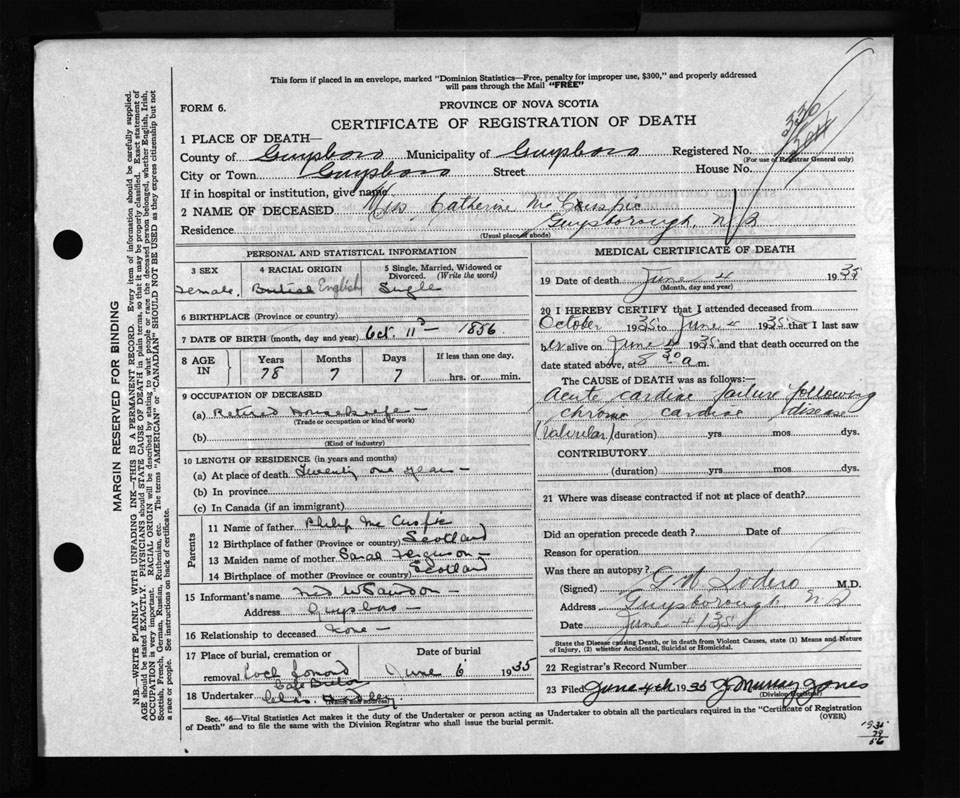 This form if placed in an envelope, marked "Dominion Statistics—Free, penalty for improper use, $300," and properly addressed
will pass through the Mail "FREE"
FORM 6.
PROVINCE OF NOVA SCOTIA
CERTIFICATE OF REGISTRATION OF DEATH
1 PLACE OF DEATH—
County of Guysboro Municipality of Guysboro Registered No.
(For use of Registrar General only)
City or Town Guysboro Street House No.
If in hospital or institution, give name
2 NAME OF DECEASED Catherine
Residence Guysborough, N S
(Usual place of abode)
PERSONAL AND STATISTICAL INFORMATION
3 SEX
4 RACIAL ORIGIN
5 Single, Married, Widowed or
Divorced. (Write the word)
Female. British English Single
6 BIRTHPLACE (Province or country)
7 DATE OF BIRTH (month, day and year) Oct. 11 1856
8 AGE IN
Years Months Days If less than one day,
78 7 7 hrs. or min.
9 OCCUPATION OF DECEASED
(a) Retired Housekeeper —
(Trade or occupation or kind of work)
(b)
(Kind of industry)
10 LENGTH OF RESIDENCE (in years and months)
(a) At place of death Twenty one years —
(b) In province
(c) In Canada (if an immigrant)
Parents
11 Name of father Philip Mc Cuspic
12 Birthplace of father (Province or country) Scotland
13 Maiden name of mother Sarah Ferguson —
14 Birthplace of mother (Province or country) Scotland
15 Informant's name
Address Guysboro —
16 Relationship to deceased None —
17 Place of burial, cremation or Date of burial
removal Loch Lomond June 6 1935
Cape Breton
18 Undertaker Chas.
(Name and address)
MEDICAL CERTIFICATE OF DEATH
19 Date of death June 4 1935
(Month, day and year)
20 I HEREBY CERTIFY that I attended deceased from
October 1935 to June 4 1935 that I last saw
her alive on June 1935 and that death occurred on the
date stated above, at 8 30 a m.
The CAUSE OF DEATH was as follows:—
Acute cardiac failure following
chronic cardiac disease
(Valvular) (duration) yrs mos dys.
CONTRIBUTORY
(duration) yrs mos dys.
21 Where was disease contracted if not at place of death?
Did an operation precede death? Date of
Reason for operation
Was there an autopsy?
(Signed) M.D.
Address Guysborough, N S
Date June 4 1935
State the Disease causing Death, or in death from Violent Causes, state (1) Means and Nature
of Injury, (2) whether Accidental, Suicidal or Homicidal.
22 Registrar's Record Number
23 Filed June 4th 1935 J Murray Jones
(Division Registrar)
Sec. 46—Vital Statistics Act makes it the duty of the Undertaker or person acting as Undertaker to obtain all the particulars required in the "Certificate of Registration
of Death" and to file the same with the Division Registrar who shall issue the burial permit.
(OVER)
MARGIN RESERVED FOR BINDING
N.B.—WRITE PLAINLY WITH UNFADING INK—THIS IS A PERMANENT RECORD. Every item of information should be carefully supplied.
AGE should be stated EXACTLY. PHYSICIANS should STATE CAUSE OF DEATH in plain terms, so that it may be properly classified. Exact statement of
OCCUPATION is very important. RACIAL ORIGIN will be described by stating to what people or race the deceased person belonged, whether English, Irish,
Scottish, French, German, Russian, Ruthenian, etc. The terms "AMERICAN" or "CANADIAN" SHOULD NOT BE USED as they express citizenship but not
a race or people. See instructions on back of certificate.